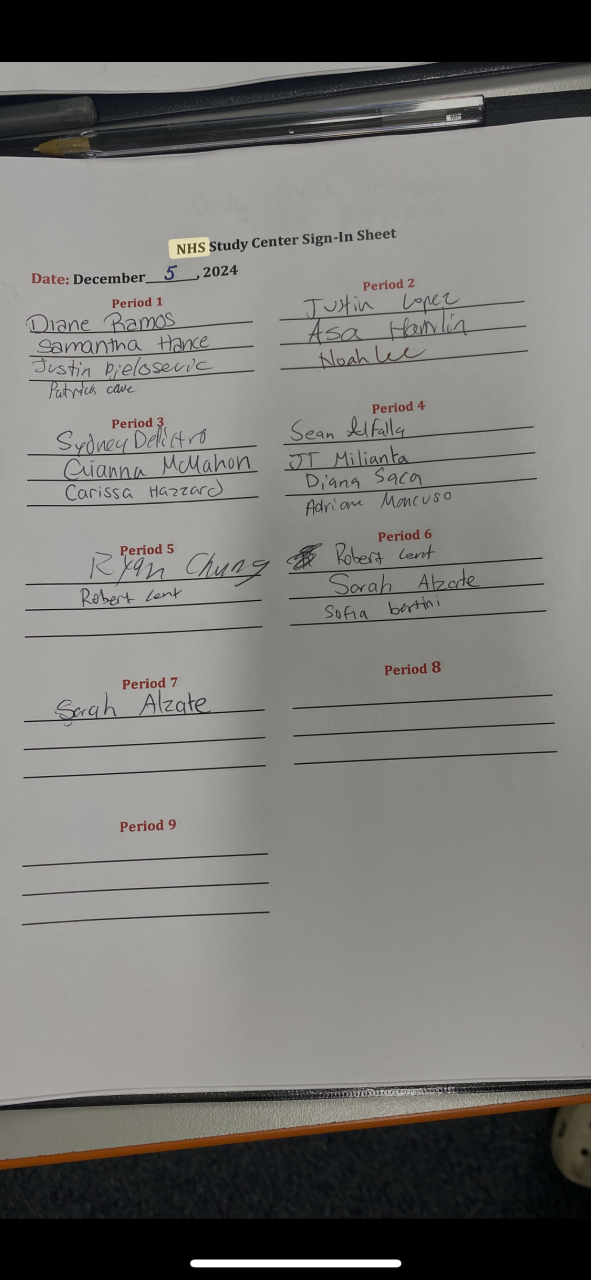 NHS Study Center Sign-In Sheet
Date: December 5, 2024
Period 1
Diane Ramos
Samantha Hance
Justin Bjelosevic
Patrick cave
Period 2
Justin Lopez
Asa Hamlin
Noah Lee
Period 3
Sydney
Gianna McMahon
Carissa Hazzard
Period 4
Sean Alfalla
JT Milianta
Diana Saca
Adriane Moncuso
Period 5
Ryan Chung
Robert Lent
Period 6
Robert Lent
Sarah Alzate
Sofia bertini
Period 7
Sarah Alzate
Period 8
Period 9